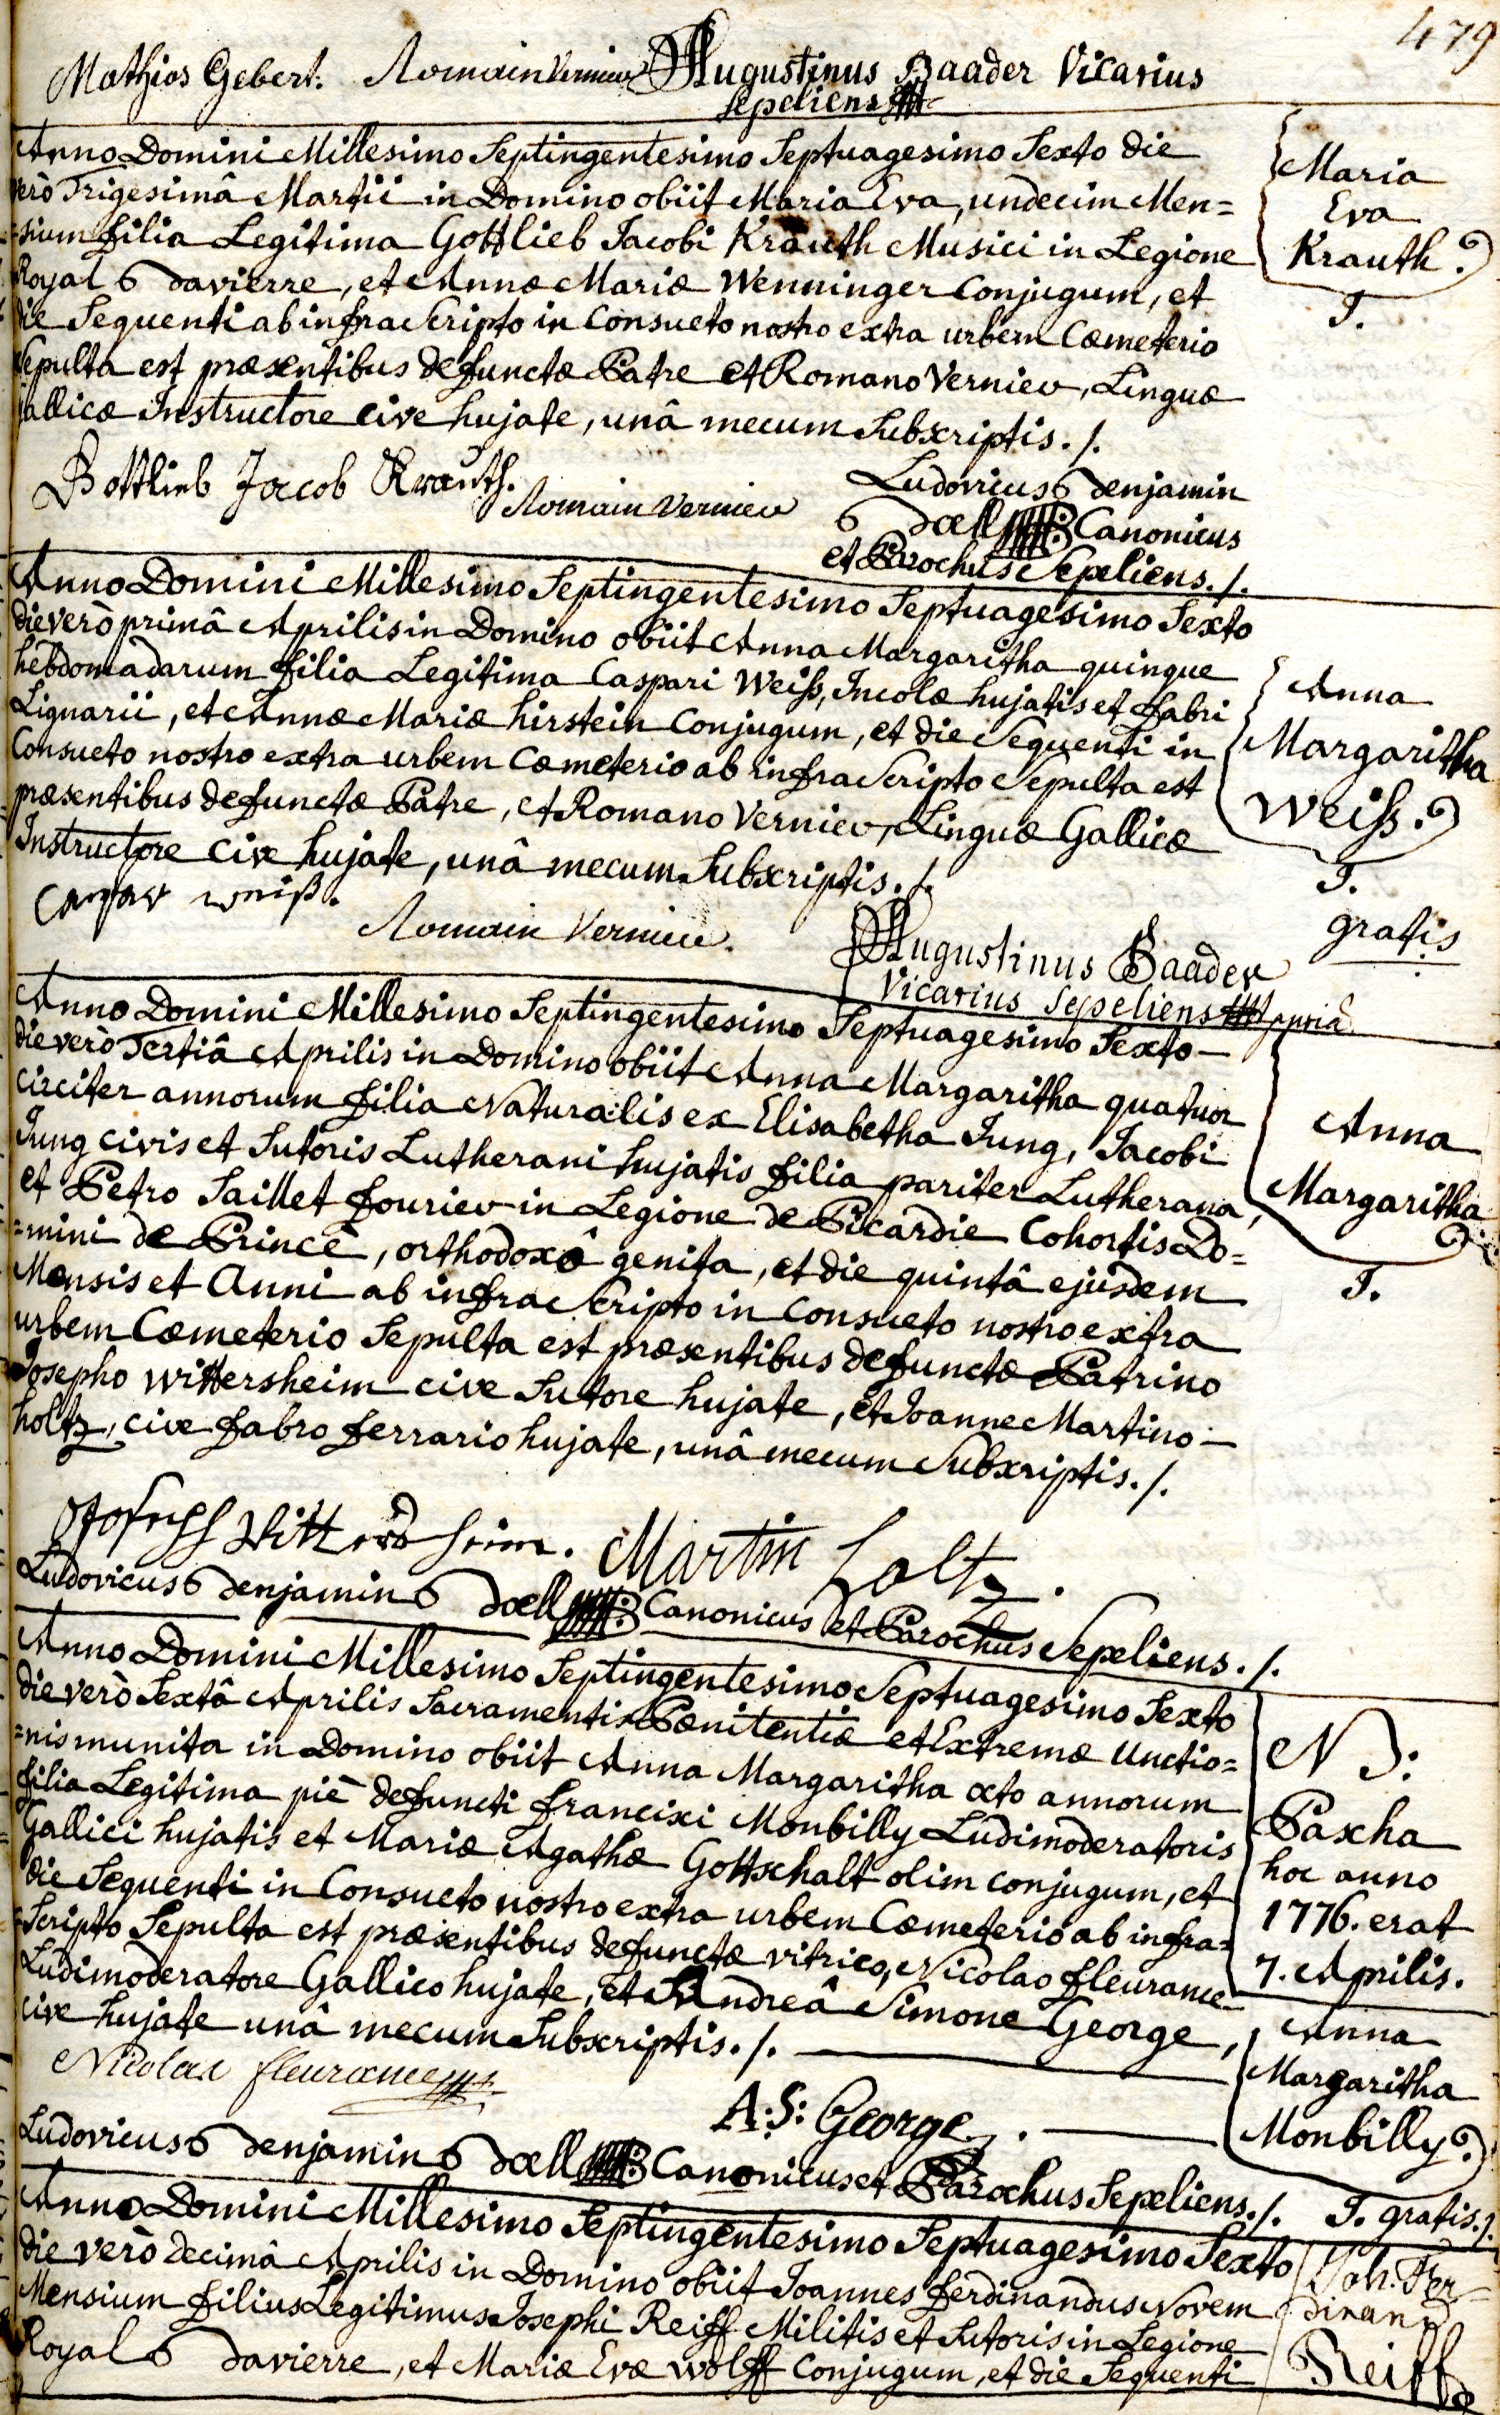 479
Mathias Gebert. Romain Vernier Augustinus Baader Vicarius
sepeliens
Anno Domini Millesimo Septingentesimo Septuagesimo Sexto die
verò Trigesimâ Martii in Domino obiit Maria Eva, undecim Men=
=sium filia Legitima Gottlieb Jacobi Krauth Musici in Legione
Royal Bavierre, et Annæ Mariæ Wenninger Conjugum, et
die Sequenti ab infra Scripto in Consueto nostro extra urbem Cœmeterio
Sepulta est præsentibus defunctæ Patre et Romano Vernier, Linguæ
gallicæ Instructore cive hujate, unâ mecum Subscriptis./.
Maria
Eva
Krauth.
T.
Gottlieb Jacob Krauth.
Romain Vernier
Ludovicus Benjamin
Bœll Canonicus
et Parochus Sepeliens./.
Anno Domini Millesimo Septingentesimo Septuagesimo Sexto
die verò primâ Aprilis in Domino obiit Anna Margaritha quinque
hebdomadarum filia Legitima Caspari Weiß, Incolæ hujatis et fabri
Lignarii, et Annæ Mariæ hirstein Conjugum, et die Sequenti in
Consueto nostro extra urbem Cœmeterio ab infra Scripto Sepulta est
præsentibus defunctæ Patre, et Romano Vernier, Linguæ Gallicæ
Instructore Cive hujate, unâ mecum Subscriptis./.
Anna
Margaritha
Weiß.
T.
gratis
Caspar weiß.
Romain Vernier.
Augustinus Baader
Vicarius Sepeliens ppriâ
Anno Domini Millesimo Septingentesimo Septuagesimo Sexto
die verò Tertiâ Aprilis in Domino obiit Anna Margaritha quatuor
circiter annorum filia Naturalis ex Elisabetha Jung, Jacobi
Jung civis et Sutoris Lutherani hujatis filia pariter Lutherana,
et Petro Saillet fourier in Legione de Picardie Cohortis Do=
=mini de Princé, orthodoxô genita, et die quintâ ejusdem
Mensis et Anni ab infra Scripto in Consueto nostro extra
urbem Cœmeterio Sepulta est præsentibus defunctæ Patrino
Josepho Wittersheim cive Sutore hujate, et Joanne Martino
holtz, cive fabro ferrario hujate, unâ mecum Subscriptis./.
Anna
Margaritha
T.
Joseph Wittersheim. Martin Holtz.
Ludovicus Benjamin Bœll Canonicus et Parochus Sepeliens./.
Anno Domini Millesimo Septingentesimo Septuagesimo Sexto
die verò Sextâ Aprilis Sacramentis Pœnitentiæ et Extremæ Unctio=
=nis munita in Domino obiit Anna Margaritha octo annorum
filia Legitima piè defuncti francisci Monbilly Ludimoderatoris
Gallici hujatis et Mariæ Agathæ Gottschalt olim conjugum, et
die Sequenti in Consueto nostro extra urbem Cœmeterio ab infra=
=Scripto Sepulta est præsentibus defunctæ vitrico, Nicolao fleurance
Ludimoderatore Gallico hujate, et Andreâ Simone George,
cive hujate unâ mecum Subscriptis./.
NB:
Pascha
hoc anno
1776. erat
7. Aprilis.
Anna
Margaritha
Monbilly
T. gratis./.
Nicolas fleurance
A: S: George.
Ludovicus Benjamin Bœll Canonicus et Parochus Sepeliens./.
Anno Domini Millesimo Septingentesimo Septuagesimo Sexto
die verò decimâ Aprilis in Domino obiit Joannes ferdinandus Novem
Mensium filius Legitimus Josephi Reiff Militis et Sutoris in Legione
Royal Bavierre, et Mariæ Evæ Wolff Conjugum, et die Sequenti
Joh. Fer=
dinand
Reiff